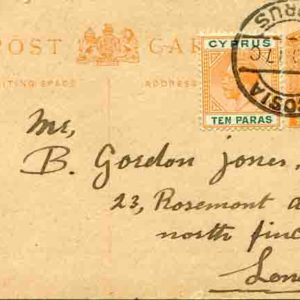 POST CARD
WRITING SPACE ADDRESS
CYPRUS
TEN PARAS
Mr,
B. Gordon Jones,
23, Rosemont a
north finc
Lon